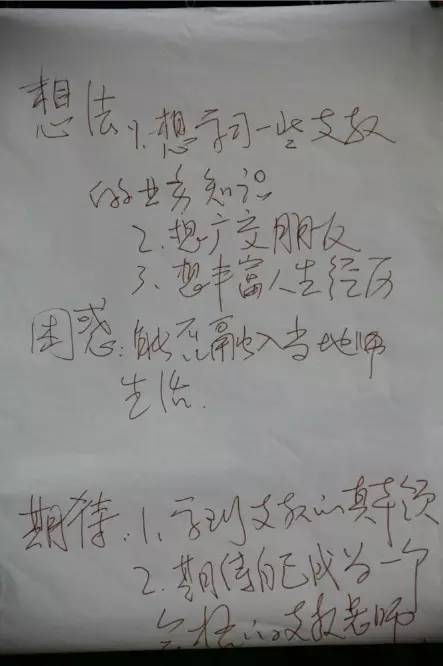 想法:1.想学习一些支教
的业务知识
2.想广交朋友
3.想丰富人生经历
困惑:能否融入当地师
生活.
期待:1.学到支教的真本领
2.期待自己成为一个
合格的支教老师